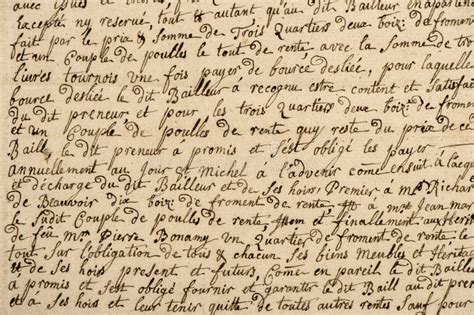 avec Issues et
Excepte ny reserve, tout et autant qu'au dit Bailleur en apartient
fait par le prix & Somme de Trois Quartiers deux boix: de froment
et un Couple de poulles le tout de rente, avec la Somme de
livres tournois vne fois payer de bource desliée, pour laquelle
bource desliée le dit Bailleur a recognu estre content et Satisfait
du dit preneur, et pour les trois Quartiers deux boix: de froment
et un Couple de poulles de rente quy reste du prix de ce
Baill, le dit preneur à promis et s'est obligé les payer
annuellement au Jour St Michel à l'advenir come ensuit à l'acquit
et décharge du dit Bailleur et de Ses hoirs Premier a Mr Richard
de Beauvoir dix boix: de froment de rente, Item a Mr Jean
le Sudit Couple de poulles de rente, Item et finallement aux
de feu Mr Pierre Bonamy un Quartier de froment de rente le
tout Sur l'obligation de tous & chacun Ses biens Meubles et Heritages
et de Ses hoirs present et futurs, Come en pareil le dit Bailleur
a promis et s'est obligé fournir et garantir le dit Baill au dit preneur
et à Ses hoirs et leur tenir quitte de toutes autres rentes Sauf pour